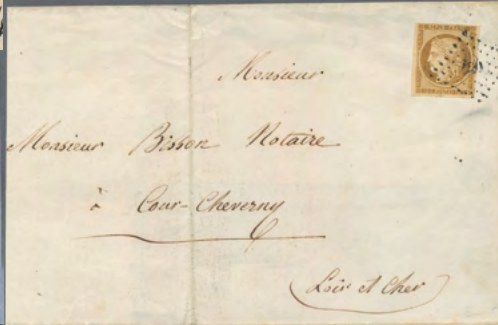 Monsieur
Monsieur Bisson Notaire
à Cour-Cheverny
Loir et Cher